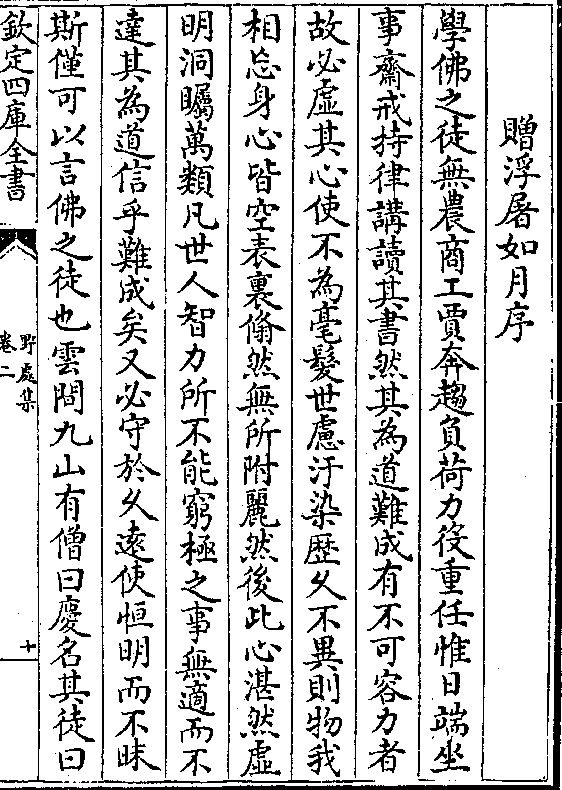 贈浮屠如月序
學佛之徒無農商工賈奔趨負荷力役重任惟日端坐
事齋戒持律講讀其書然其為道難成有不可容力者
故必虛其心使不為毫髮世慮汙染歴乆不異則物我
相忘身心皆空表裏翛然無所附麗然後此心湛然虛
明洞矚萬類凡世人智力所不能窮極之事無適而不
達其為道信乎難成矣又必守於乆遠使恒明而不昧
斯僅可以言佛之徒也雲間九山有僧曰慶名其徒曰
欽定四庫全書
野處集
卷二
十